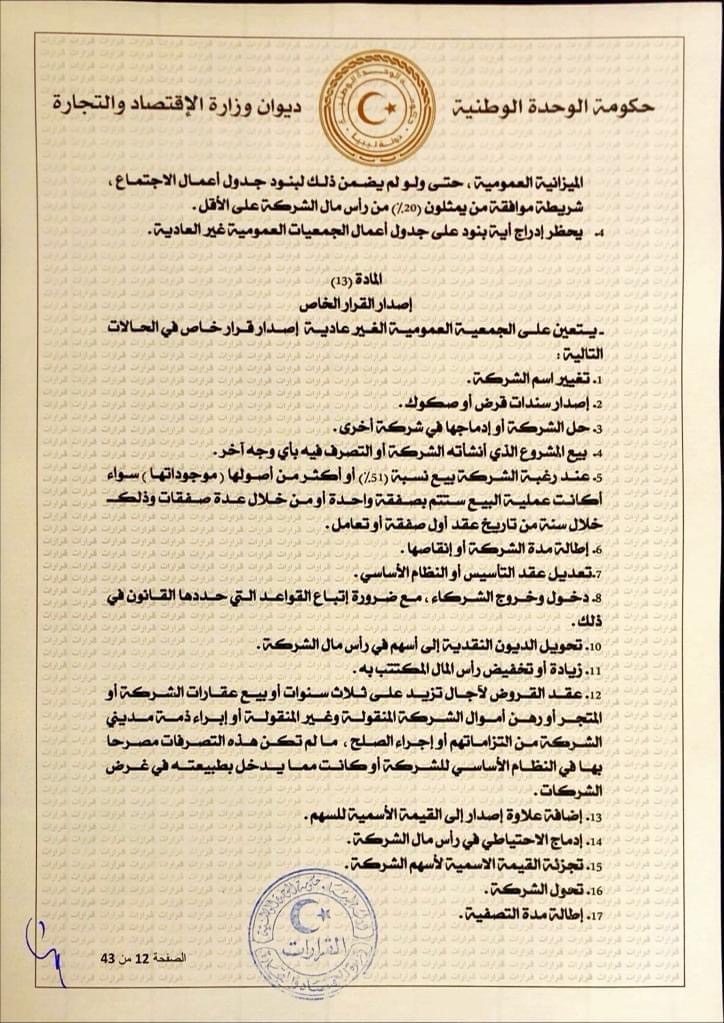 حكومة الوحدة الوطنية
ديوان وزارة الإقتصاد والتجارة
الميزانية العمومية ، حتى ولو لم يضمن ذلك لبنود جدول أعمال الاجتماع ،
شريطة موافقة من يمثلون (20٪) من رأس مال الشركة على الأقل.
4- يحظر إدراج أية بنود على جدول أعمال الجمعيات العمومية غير العادية.
المادة (13)
إصدار القرار الخاص
- يتعين على الجمعية العمومية الغير عادية إصدار قرار خاص في الحالات
التالية :
1- تغيير اسم الشركة.
2- إصدار سندات قرض أو صكوك.
3- حل الشركة أو إدماجها في شركة أخرى.
4- بيع المشروع الذي أنشأته الشركة أو التصرف فيه بأي وجه آخر.
5- عند رغبة الشركة بيع نسبة (51٪) أو أكثر من أصولها ( موجوداتها ) سواء
أكانت عملية البيع ستتم بصفقة واحدة أو من خلال عدة صفقات وذلك
خلال سنة من تاريخ عقد أول صفقة أو تعامل.
6- إطالة مدة الشركة أو إنقاصها.
7-تعديل عقد التأسيس أو النظام الأساسي.
8- دخول وخروج الشركاء ، مع ضرورة إتباع القواعد التي حددها القانون في
ذلك.
10- تحويل الديون النقدية إلى أسهم في رأس مال الشركة.
11- زيادة أو تخفيض رأس المال المكتتب به.
12- عقد القروض لآجال تزيد على ثلاث سنوات أو بيع عقارات الشركة أو
المتجر أو رهن أموال الشركة المنقولة وغير المنقولة أو إبراء ذمة مديني
الشركة من التزاماتهم أو إجراء الصلح ، ما لم تكن هذه التصرفات مصرحا
بها في النظام الأساسي للشركة أو كانت مما يدخل بطبيعته في غرض
الشركات.
13- إضافة علاوة إصدار إلى القيمة الأسمية للسهم.
14- إدماج الاحتياطي في رأس مال الشركة.
15- تجزئة القيمة الاسمية لأسهم الشركة.
16- تحول الشركة.
17- إطالة مدة التصفية.
القرارات
الصفحة 12 من 43